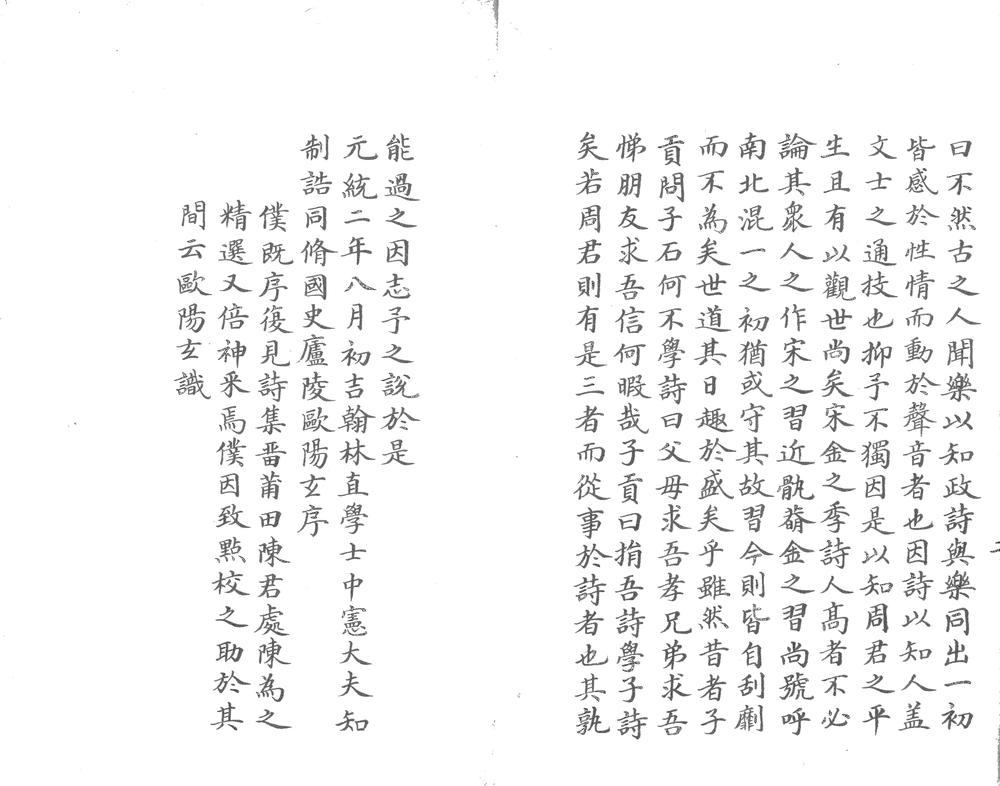 曰不然古之人聞樂以知政詩與樂同出一初
皆感於性情而動於聲音者也因詩以知人盖
文士之通技也抑予不獨因是以知周君之平
生且有以觀世尚矣宋金之季詩人髙者不必
論其衆人之作宋之習近骩骳金之習尚號呼
南北混一之初猶或守其故習今則皆自刮劘
而不為矣世道其日趣於盛矣乎雖然昔者子
貢問子石何不學詩曰父母求吾孝兄弟求吾
悌朋友求吾信何暇哉子貢曰捐吾詩學子詩
矣若周君則有是三者而從事於詩者也其孰
能過之因志予之說於是
元統二年八月初吉翰林直學士中憲大夫知
制誥同脩國史廬陵歐陽玄序
僕既序復見詩集畨莆田陳君處陳為之
精選又倍神釆焉僕因致㸃校之助於其
間云歐陽玄識